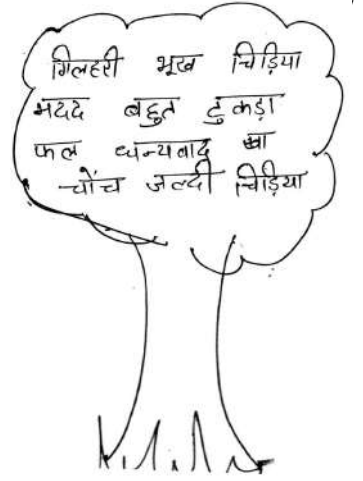 गिलहरी भूख चिड़िया
मदद बहुत टुकड़ा
फल धन्यवाद खा
चोंच जल्दी चिड़िया